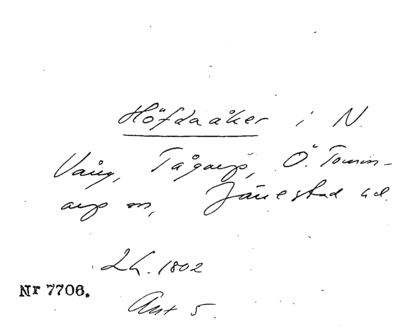 Höfdaåker i N.
Vång, Tågarp, Ö. Tommar-
arp sn, Järrestad hd.
LH. 1802
Nr 7706.
Akt 5.